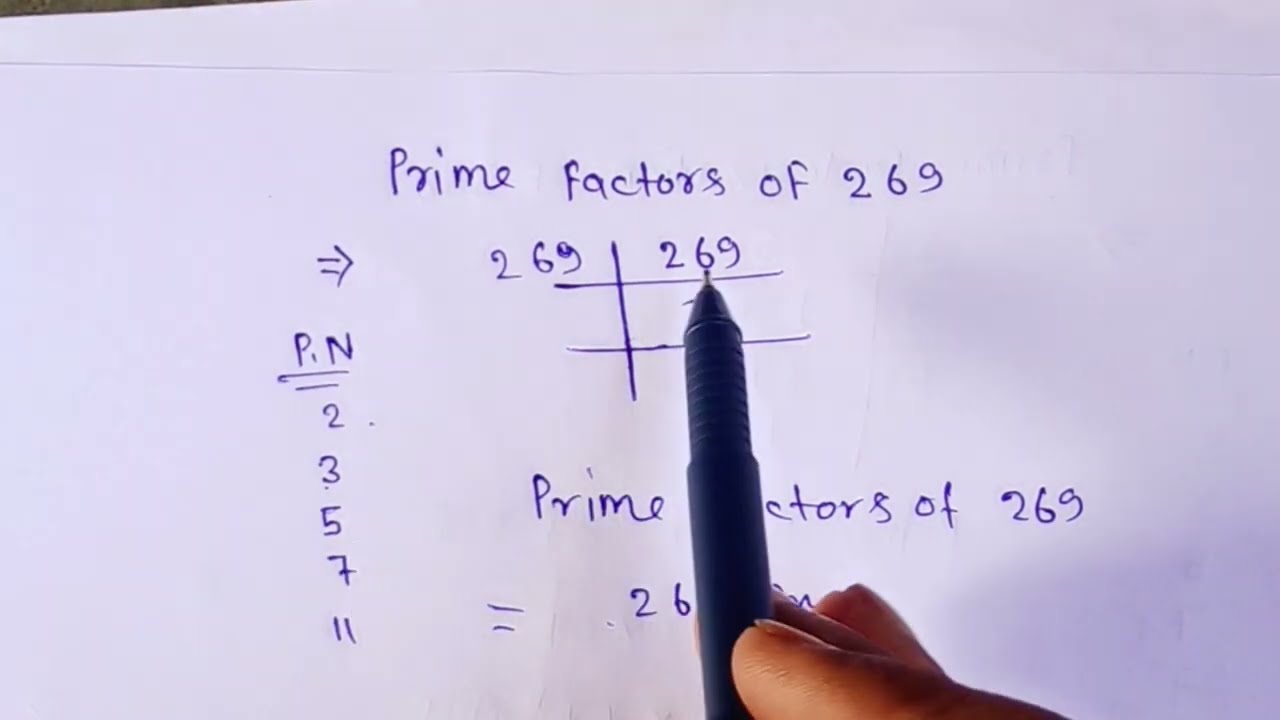 Prime factors of 269
⇒ 269 | 269
P.N
2
3
5
7
11
Prime of 269
=